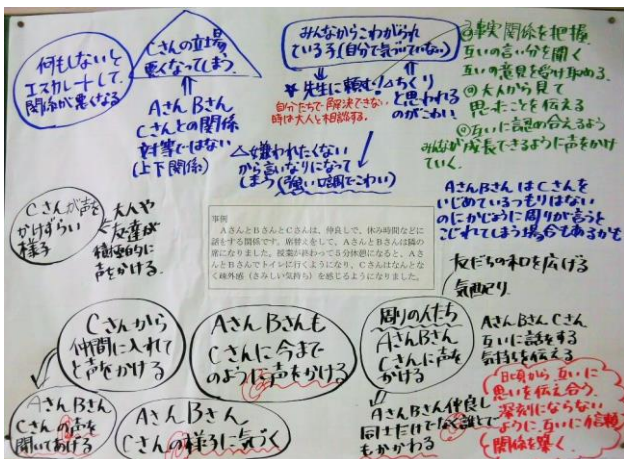 何もしないと
エスカレートして、
関係が悪くなる
Cさんの立場、
悪くなってしまう。
AさんBさん
Cさんとの関係
対等ではない
(上下関係)
みんなからこわがられ
ている子(自分で気づいていない)
先生に頼む!
△ちくり
と思われる
のがこわい。
自分たちで解決できない
時は大人と相談する。
△嫌われたくない
から言いなりになって
しまう(強い口調でこわい)
事実関係を把握
互いの言い分を聞く
互いの意見を受け止める。
大人から見て
思ったことを伝える
互いに認め合えるよう
みんなが成長できるように声をかけ
ていく。
Cさんが声を
かけずらい
様子
大人や
友達が
積極的に
声をかける。
事例
AさんとBさんとCさんは、仲良しで、休み時間などに
話をする関係です。席替えをして、AさんとBさんは隣の
席になりました。授業が終わって5分休憩になると、Aさ
んとBさんでトイレに行くようになり、Cさんはなんとな
く疎外感(さみしい気持ち)を感じるようになりました。
AさんBさんはCさんを
いじめているつもりはない
のにかじょうに周りが言うと
こじれてしまう場合もあるかも
友だちの和を広げる
気配り。
Cさんから
仲間に入れて
と声をかける
AさんBさんも
Cさんに今まで
のように声をかける
周りの人たち
AさんBさん
Cさんに声を
かける
AさんBさんCさん
互いに話をする
気持ちを伝える
AさんBさん
Cさんの声を
聞いてあげる
AさんBさん
Cさんの様子に気づく
AさんBさん仲良し
同士だけでなく誰とで
もかかわる
日頃から互いに
思いを伝え合う。
深刻にならない
ように、互いに信頼
関係を築く。